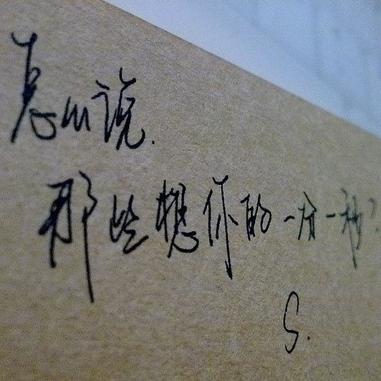 怎么说.
那些想你的一分一秒?
S.